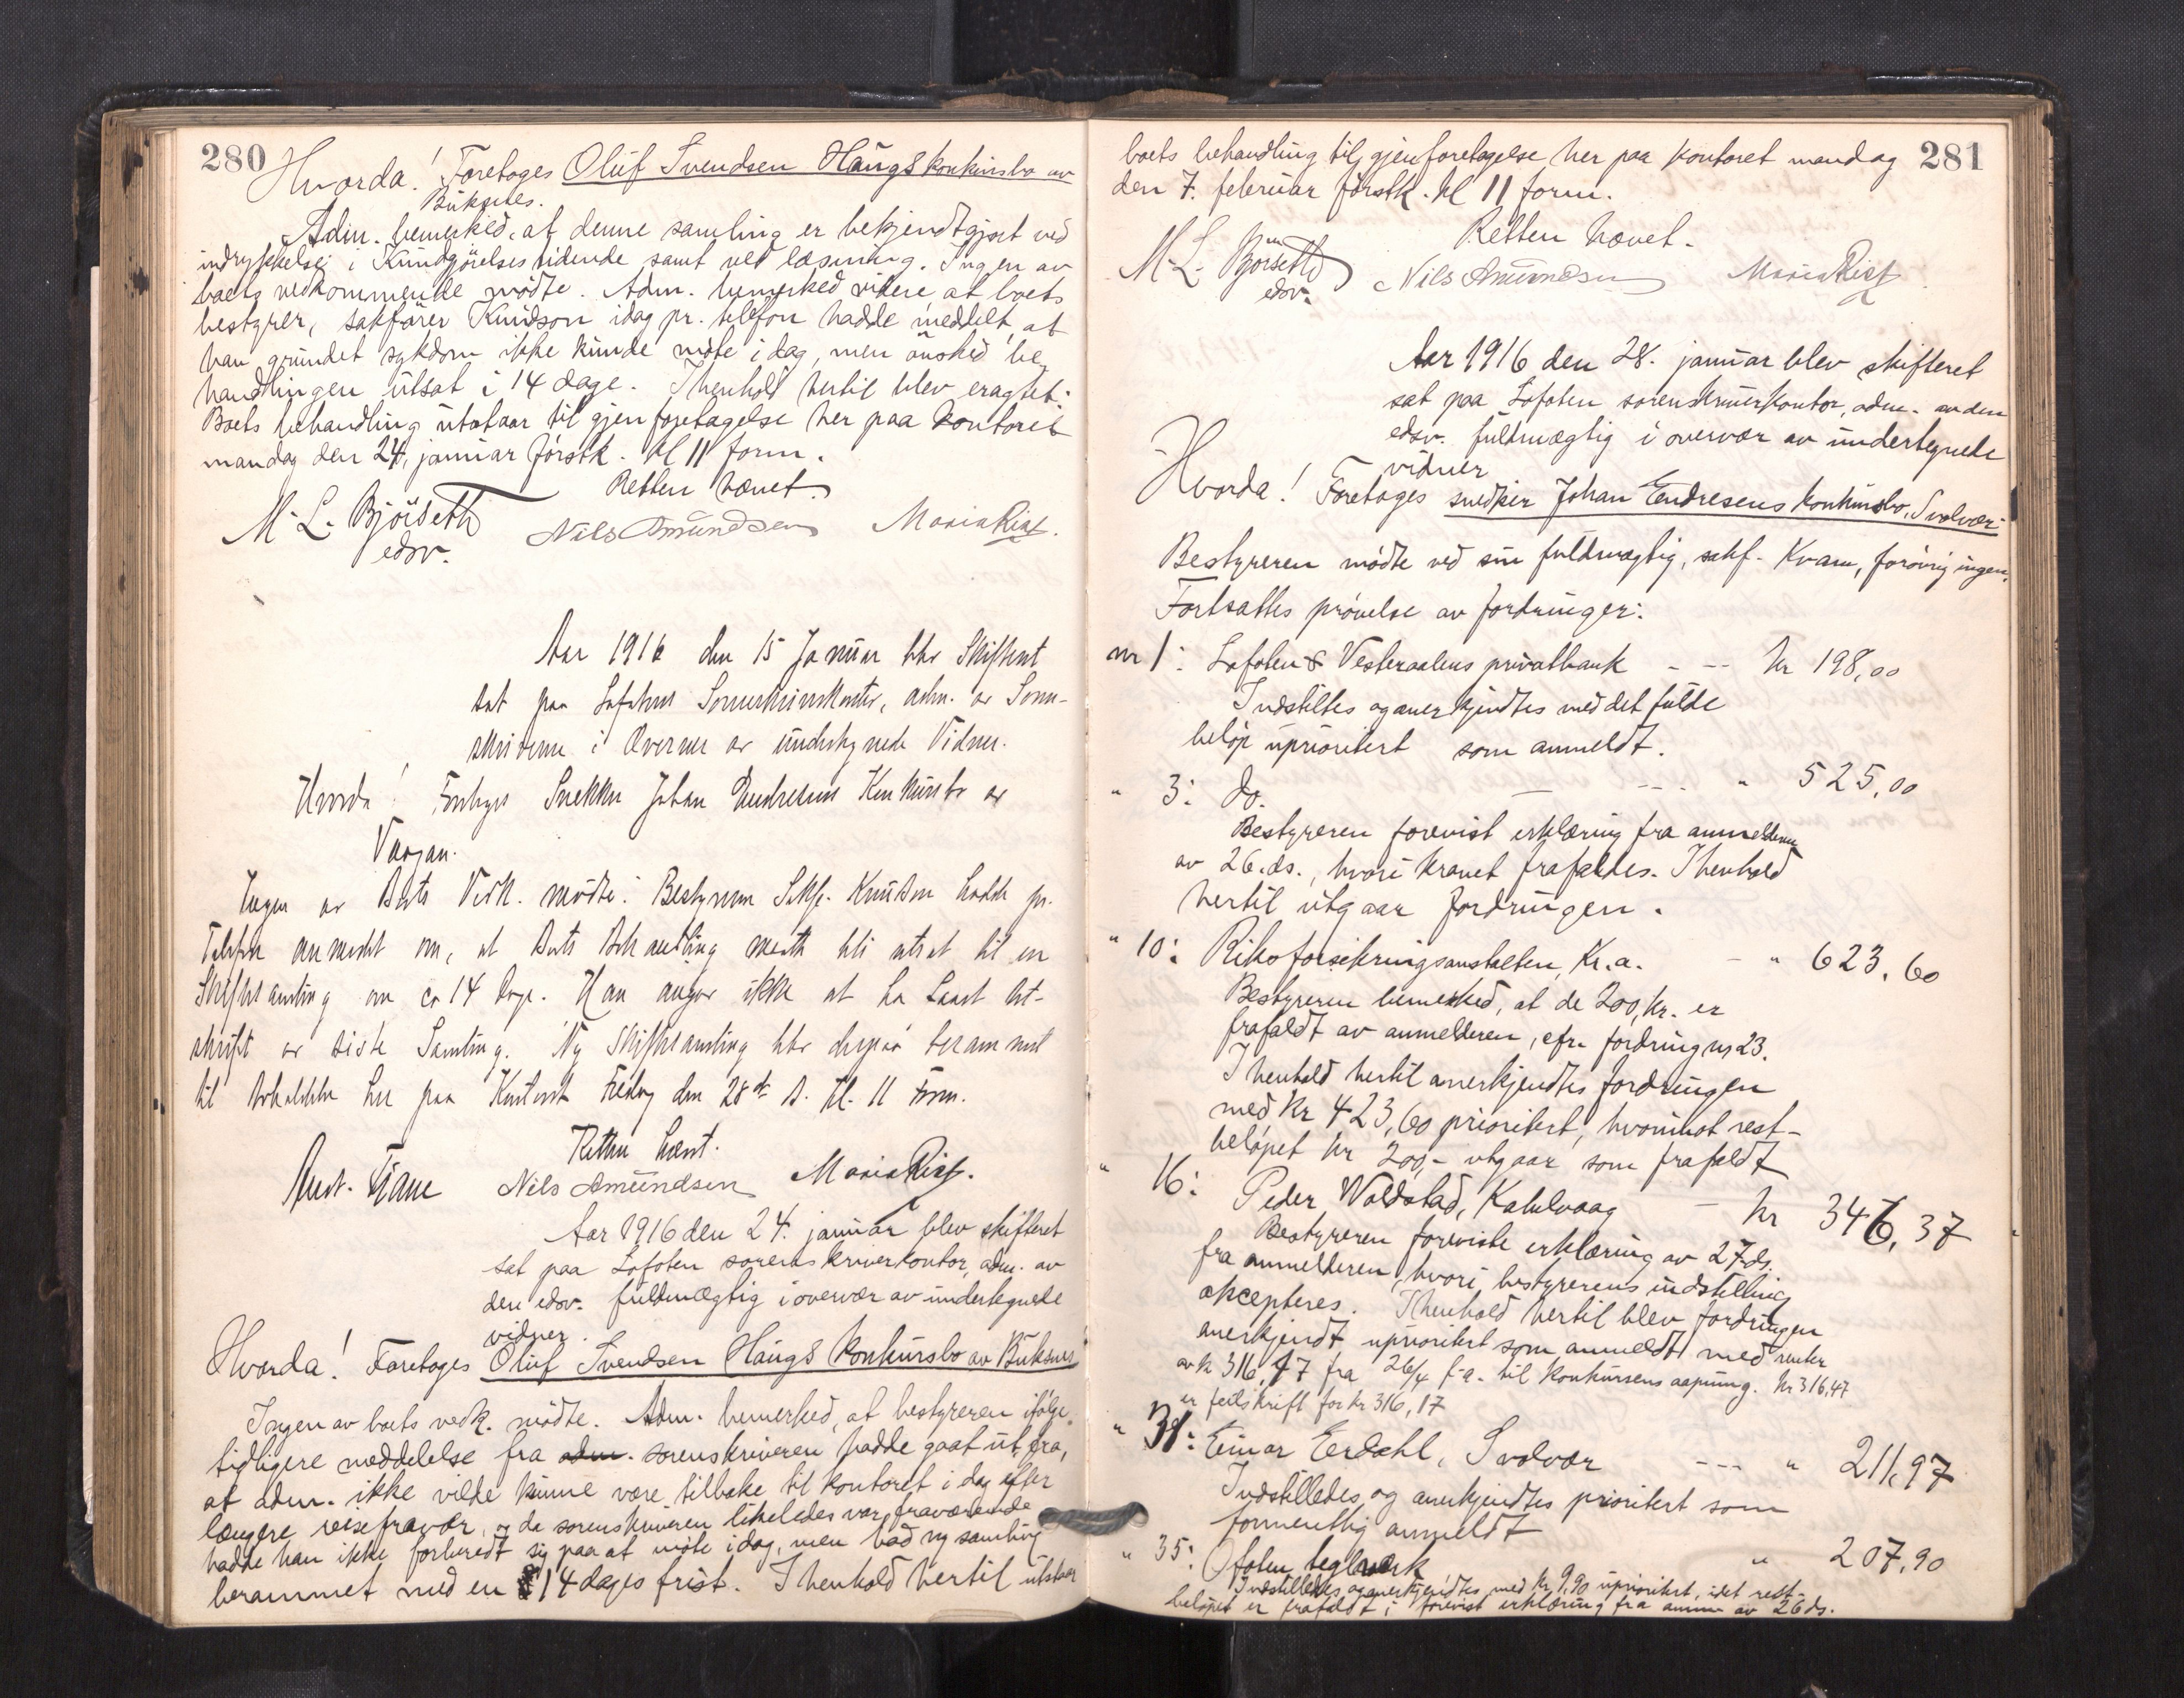 280
Hvorda! Foretoges Oluf Svendsen Haugs konkursbo av
Buksnes.
Adm. bemerked, at denne samling er bekjendtgjort ved
indrykkelse i Kundgjörelsestidende samt ved læsning. Ingen av
boets vedkommende mödte. Adm. bemerked videre at boets
bestyrer, sakförer Knudson idag pr. telefon hadde meddelt, at
han grundet sykdom ikke kunde möte i dag, men önsked be
handlingen utsat i 14 dage. I henhold hertil blev eragtet:
Boets behandling utstaar til gjenforetagelse her paa kontoret
mandag den 24. januar förstk. kl 11 form.
Retten hævet.
M. L. Björseth
edsv.
Nils Amundsen
Maria Rist.
Aar 1916 den 15 Januar blev Skifteret
sat paa Lofotens Sorenskriverkontor, adm. av Soren-
skriveren i Overvær av undertegnede Vidner.
Hvorda! Foretoges Snekker Johan Endresens Konkursbo av
Vaagan.
Ingen av Boets Vedk. mödte. Bestyreren Sakf. Knudson hadde pr.
Telefon anmodet om, at Boets Behandling maatte bli utsat til en
Skiftesamling om ca 14 Dage. Han angav ikke at ha faaet Ut-
skrift av sidste Samling. Ny Skiftesamling blev derpaa berammet
til Avholdelse her paa Kontoret Fredag den 28de ds. Kl. 11 Form.
Retten hævet.
Nils Amundsen
Maria Rist.
Aar 1916 den 24. januar blev skifteret
sat paa Lofoten sorenskriverkontor, adm. av
den edsv. fuldmægtig i overvær av undertegnede
vidner.
Hvorda! Foretoges Oluf Svendsen Haugs konkursbo av Buksnes
Ingen av boets vedk. mödte. Adm. bemerked, at bestyreren ifölge
tidligere meddelelse fra adm. sorenskriveren hadde gaat ut fra,
at adm. ikke vilde kunne være tilbake til kontoret i dag efter
længere reisefravær, og da sorenskriveren likeledes var fraværende
hadde han ikke forberedt sig paa at möte idag, men bad ny samling
berammet med en 14 dages frist. I henhold hertil utstaar
281
boets behandling til gjenforetagelse her paa kontoret mandag
den 7. februar förstk. kl 11 form.
Retten hævet.
M. L. Björseth
edsv.
Nils Amundsen
Maria Rist
Aar 1916 den 28. januar blev skifteret
sat paa Lofoten sorenskriverkontor, adm. av den
edsv. fuldmægtig i overvær av undertegnede
vidner
Hvorda! Foretoges snedker Johan Endresens konkursbo, Svolvær.
Bestyreren mödte ved sin fuldmægtig, sakf. Kvam, forövrig ingen.
Fortsattes prövelse av fordringer:
nr 1: Lofoten & Vesteraalens privatbank - -- kr 198,00
Indstilles og anerkjendtes med det fulde
belöp uprioritert som anmeldt.
" 3: do. — --- " 525,00
Bestyreren forevist erklæring fra anmelderen
av 26.ds., hvori kravet frafaldes. I henhold
hertil utgaar fordringen.
" 10: Riksforsikringsanstalten, Kr.a. - " 623,60
Bestyreren bemerked, at de 200, kr. er
frafaldt av anmelderen, cfr. fordring nr 23.
I henhold hertil anerkjendtes fordringen
med kr 423,60 prioritert, hvorimot rest-
belöpet kr 200,- utgaar som frafaldt
" 16: Peder Woldstad, Kabelvaag - kr 346,37
Bestyreren foreviste erklæring av 27.ds.
fra anmelderen, hvori bestyrerens indstilling
aksepteres. I henhold hertil blev fordringen
anerkjendt uprioritert som anmeldt med renter
av kr 316,17 fra 26/4 f.a. til konkursens aapning. Kr 316,47
er feilskrift for kr 316,17
" 31: Einar Eerdahl, Svolvær --- " 211,97
Indstilledes og anerkjendtes prioritert som
formentlig anmeldt
" 35: Ofoten teglverk " 207,90
Indstilledes og anerkjendtes med kr 9,90 uprioritert, idet rest-
belöpet er frafaldt i forevist erklæring fra anm. av 26 ds.